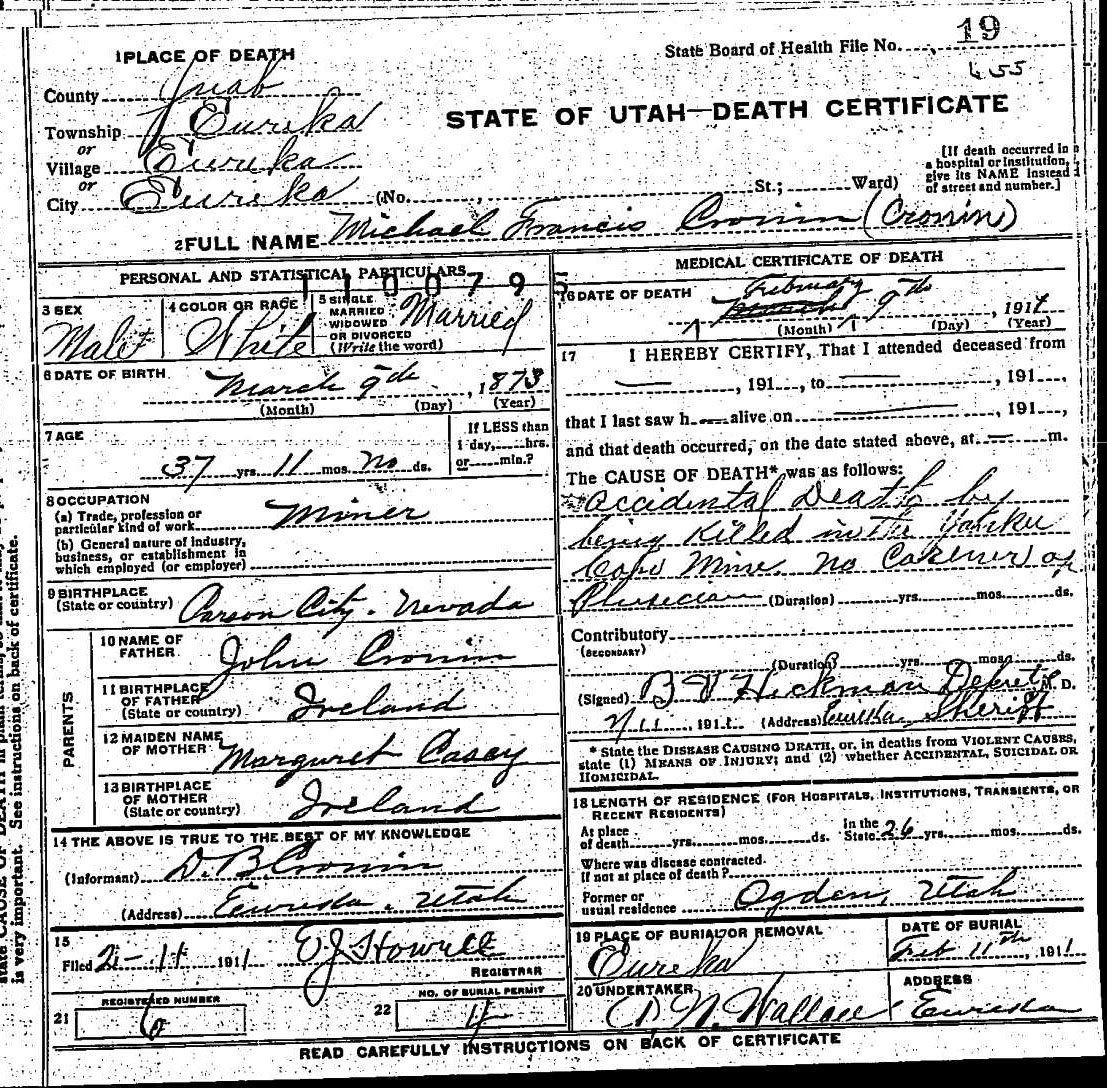 19
State Board of Health File No.
655
1 PLACE OF DEATH
County Juab
STATE OF UTAH—DEATH CERTIFICATE
Township Eureka
or
Village Eureka
or
City Eureka (No. , St.; Ward)
[If death occurred in a hospital or institution, give its NAME instead of street and number.]
2 FULL NAME Michael Francis Cronin (Cronin)
PERSONAL AND STATISTICAL PARTICULARS
1100795
3 SEX
Male
4 COLOR OR RACE
White
5 SINGLE
MARRIED
WIDOWED
OR DIVORCED
(Write the word)
Married
6 DATE OF BIRTH
March 9th , 1873
(Month) (Day) (Year)
7 AGE
37 yrs. 11 mos. no ds.
If LESS than
1 day, hrs.
or min.?
8 OCCUPATION
(a) Trade, profession or
particular kind of work
Miner
(b) General nature of industry,
business, or establishment in
which employed (or employer)
9 BIRTHPLACE
(State or country)
Carson City. Nevada
PARENTS
10 NAME OF
FATHER
John Cronin
11 BIRTHPLACE
OF FATHER
(State or country)
Ireland
12 MAIDEN NAME
OF MOTHER
Margaret Casey
13 BIRTHPLACE
OF MOTHER
(State or country)
Ireland
14 THE ABOVE IS TRUE TO THE BEST OF MY KNOWLEDGE
(Informant) D. B Cronin
(Address) Eureka. Utah
15
Filed 2-11 1911 E J Howell
REGISTRAR
REGISTERED NUMBER
21 6
NO. OF BURIAL PERMIT
22 4
MEDICAL CERTIFICATE OF DEATH
16 DATE OF DEATH
February 9th , 1911
(Month) (Day) (Year)
17 I HEREBY CERTIFY, That I attended deceased from
, 191 , to , 191 ,
that I last saw h alive on , 191 ,
and that death occurred, on the date stated above, at m.
The CAUSE OF DEATH* was as follows:
Accidental Death by
being Killed in The Yankee
Mine. No
Physician (Duration) yrs. mos. ds.
Contributory
(SECONDARY)
(Duration) yrs. mos. ds.
(Signed) B Hickman M. D.
2/11 1911 (Address) Eureka Sheriff
* State the DISEASE CAUSING DEATH, or, in deaths from VIOLENT CAUSES,
state (1) MEANS OF INJURY; and (2) whether ACCIDENTAL, SUICIDAL OR
HOMICIDAL.
18 LENGTH OF RESIDENCE (FOR HOSPITALS, INSTITUTIONS, TRANSIENTS, OR
RECENT RESIDENTS)
At place
of death yrs. mos. ds.
In the
State 26 yrs. mos. ds.
Where was disease contracted.
If not at place of death?
Former or
usual residence Ogden, Utah
19 PLACE OF BURIAL OR REMOVAL
Eureka
DATE OF BURIAL
Feb 11th , 1911
20 UNDERTAKER
N. Wallace
ADDRESS
Eureka
READ CAREFULLY INSTRUCTIONS ON BACK OF CERTIFICATE
is very important. See instructions on back of certificate.